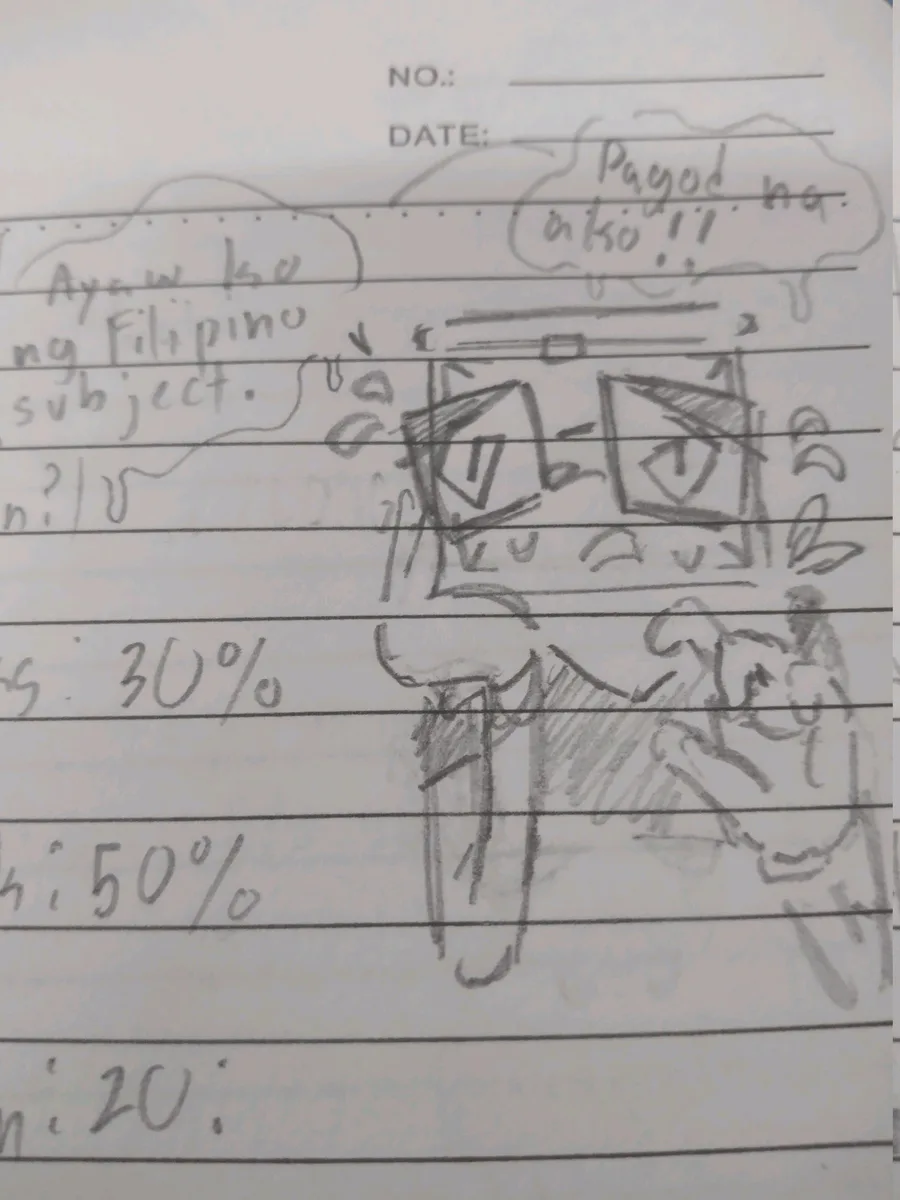 NO.:
DATE:
Pagod na
ako!!
Ayaw ko
ng Filipino
subject.
n?
s: 30%
: 50%
: 20: